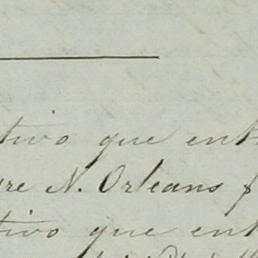 tivo que ent
re N. Orleans y
tivo que ent